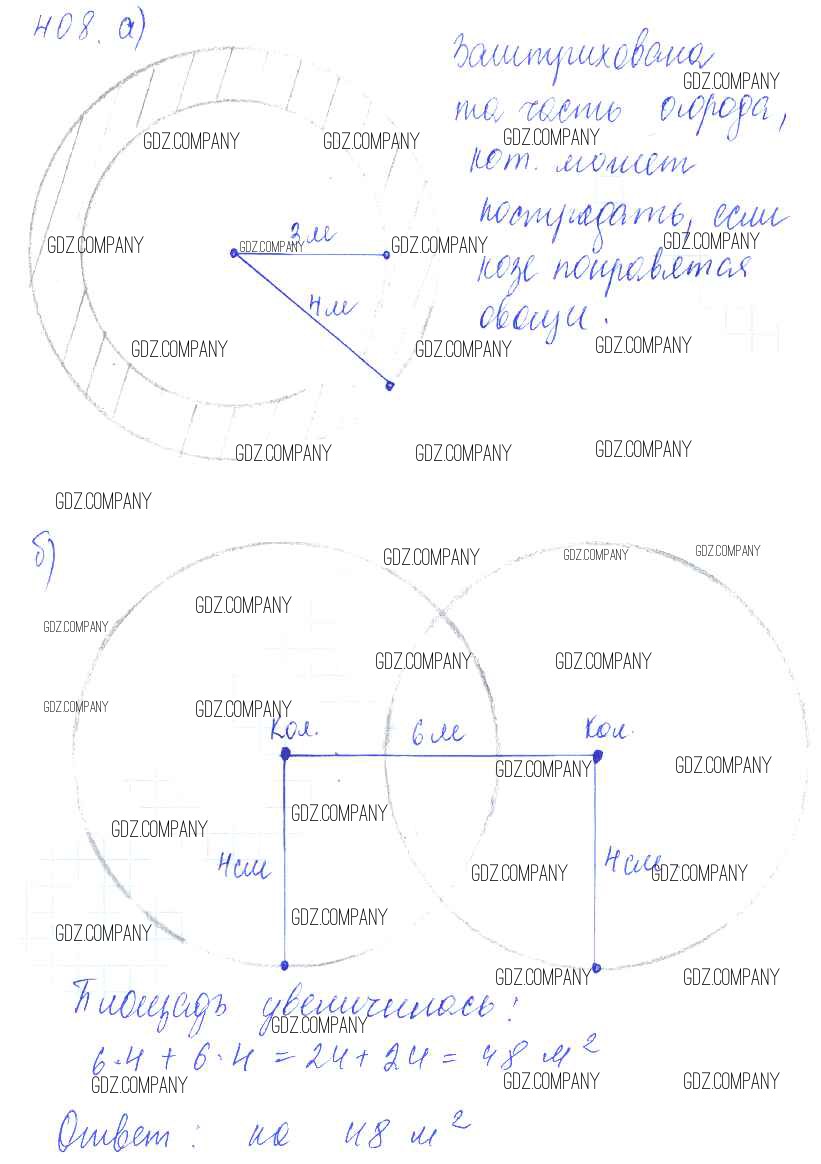 408. а)
Заштрихована
GDZ.COMPANY
та часть огорода,
GDZ.COMPANY GDZ.COMPANY GDZ.COMPANY
кот. может
пострядать, если
3 м
GDZ.COMPANY GDZ.COMPANY GDZ.COMPANY GDZ.COMPANY
козе понравятся
4 м
овощи.
GDZ.COMPANY GDZ.COMPANY GDZ.COMPANY
GDZ.COMPANY GDZ.COMPANY GDZ.COMPANY
GDZ.COMPANY
б)
GDZ.COMPANY GDZ.COMPANY GDZ.COMPANY
GDZ.COMPANY
GDZ.COMPANY
GDZ.COMPANY GDZ.COMPANY
GDZ.COMPANY GDZ.COMPANY
Кол. 6 м Кол.
GDZ.COMPANY GDZ.COMPANY
GDZ.COMPANY GDZ.COMPANY
4 см 4 см
GDZ.COMPANY GDZ.COMPANY
GDZ.COMPANY GDZ.COMPANY
GDZ.COMPANY GDZ.COMPANY
Площадь увеличилось:
GDZ.COMPANY
6·4 + 6·4 = 24 + 24 = 48 м²
GDZ.COMPANY GDZ.COMPANY GDZ.COMPANY
Ответ: на 48 м²